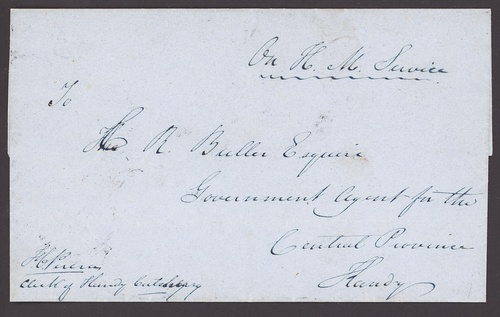 On H. M. Service
To
R. Buller Esquire
Government Agent for the
Central Province
Kandy
H Perera
Clerk of Kandy Cutcherry